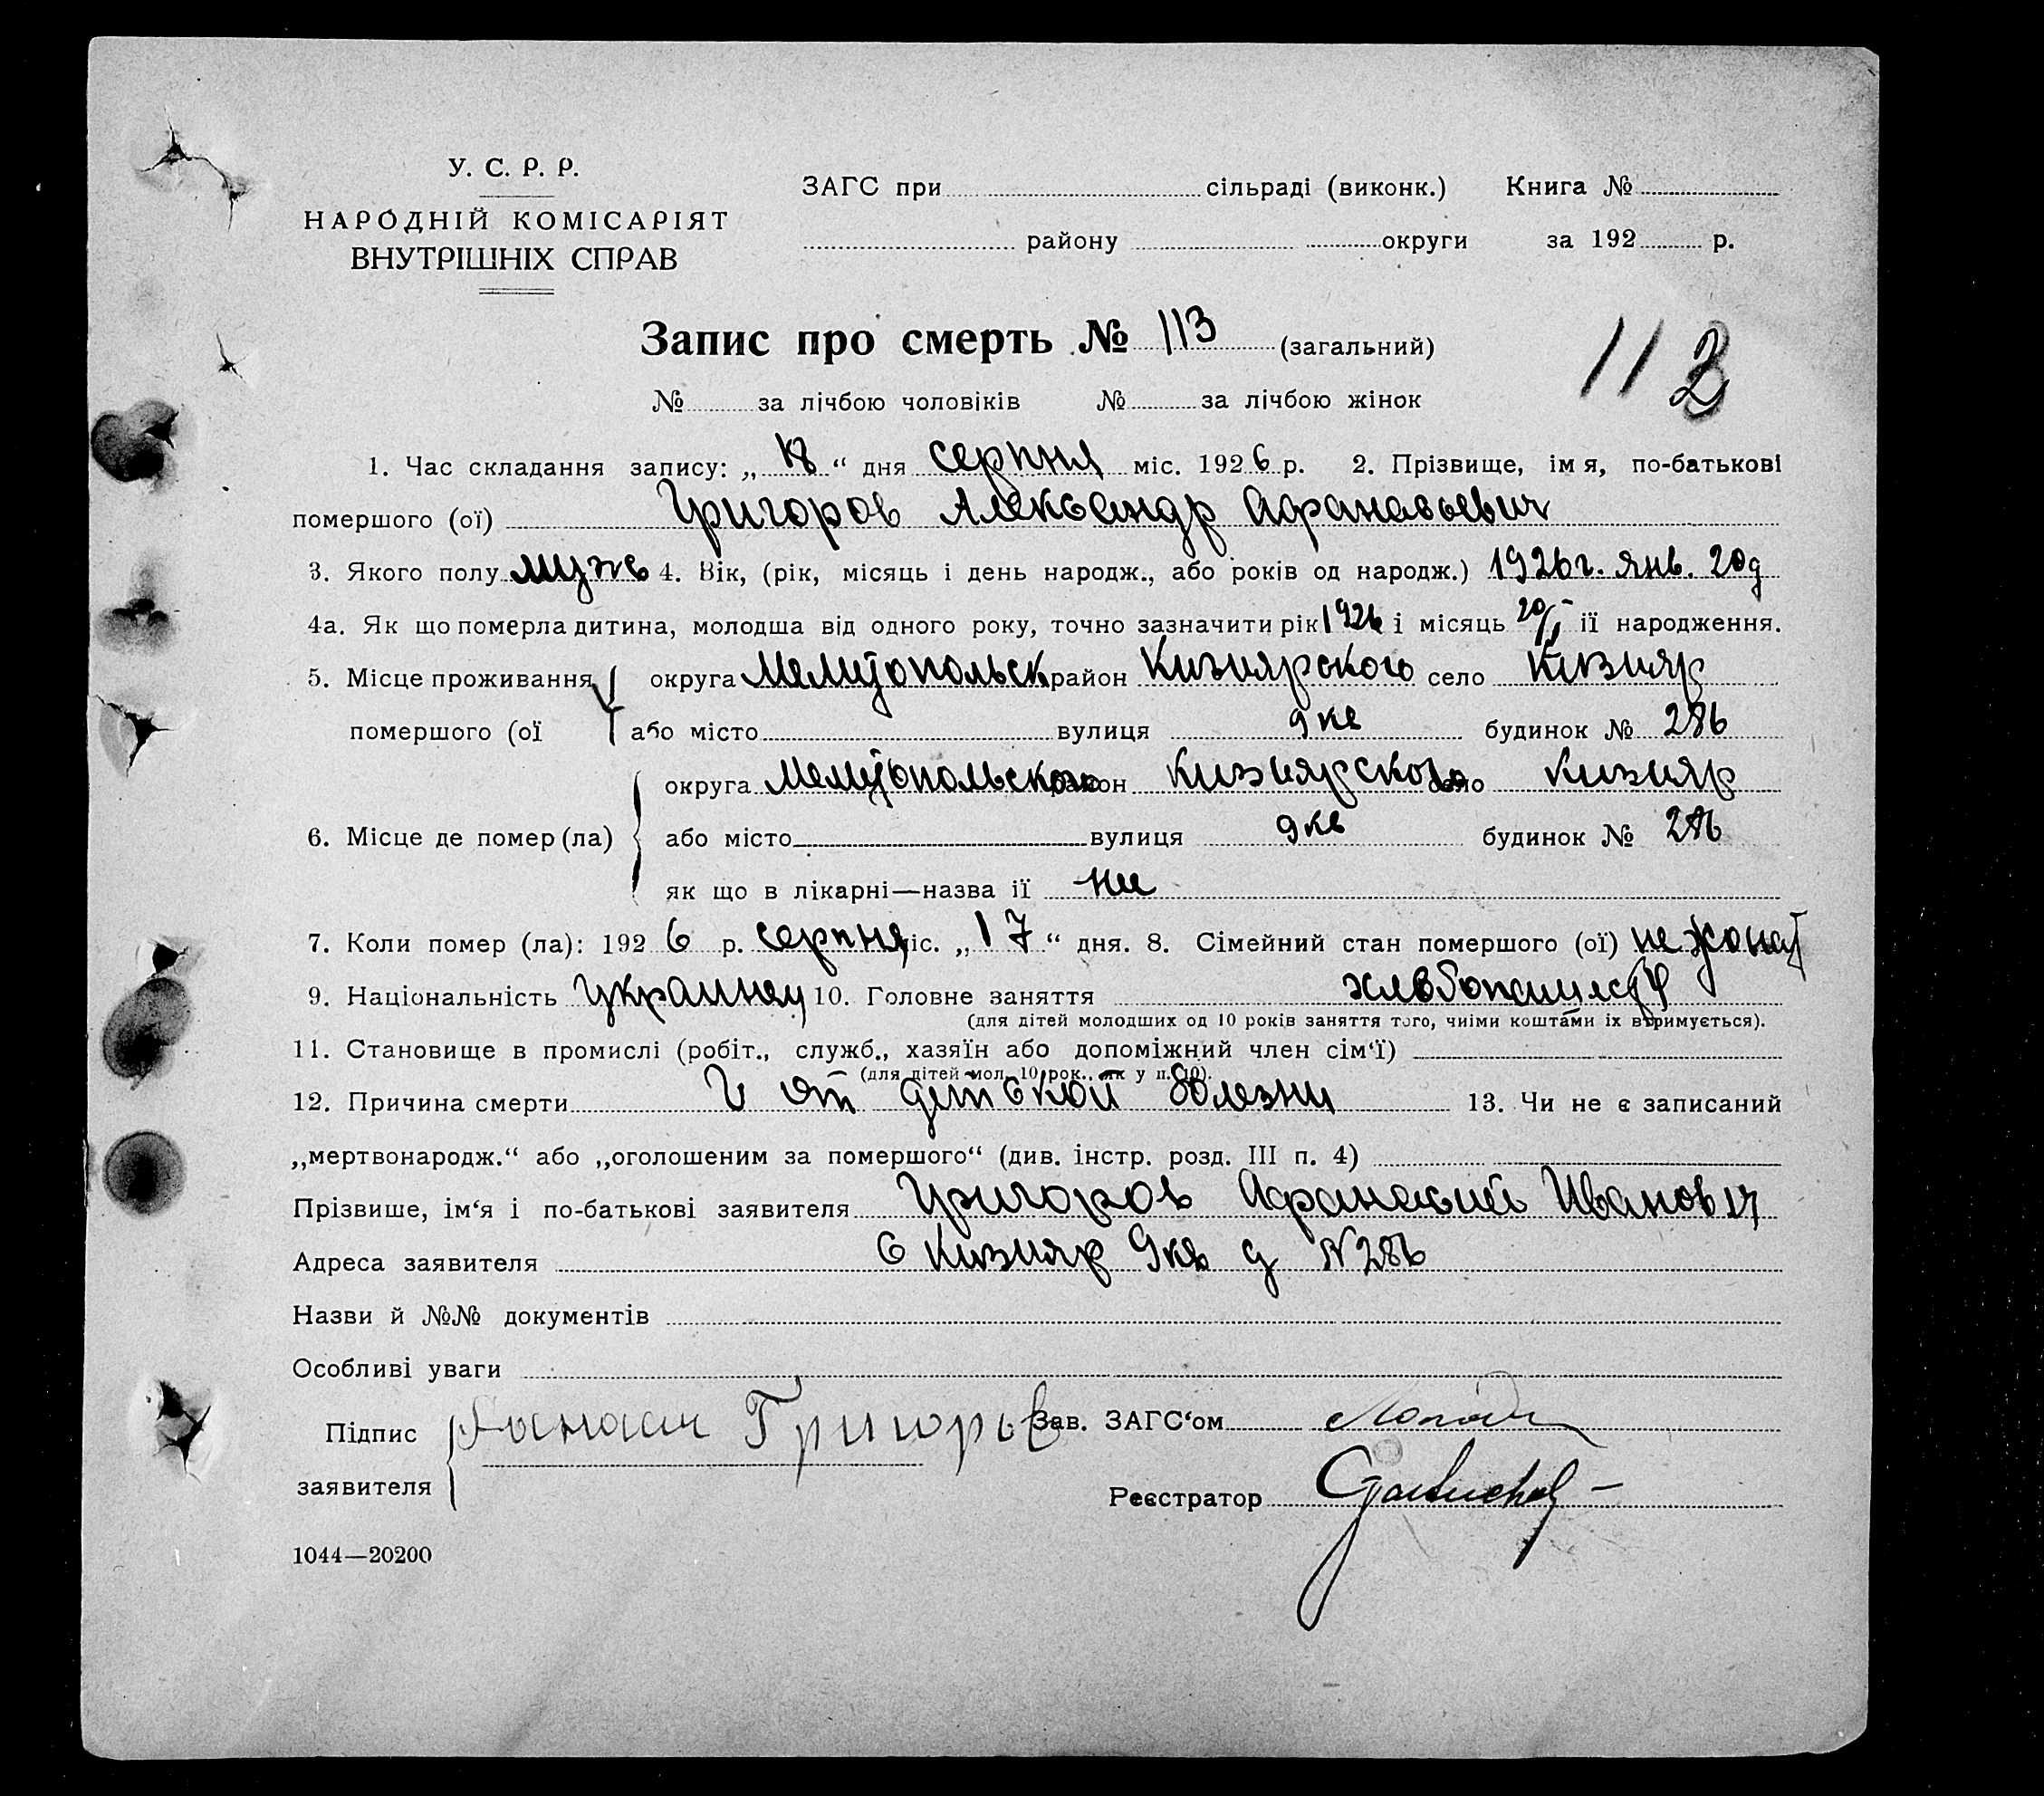 У. С. Р. Р.
НАРОДНІЙ КОМІСАРІЯТ
ВНУТРІШНІХ СПРАВ
ЗАГС при сільраді (виконк.) Книга №
району округи за 192 р.
Запис про смерть № 113 (загальний)
113
№ за лічбою чоловіків № за лічбою жінок
1. Час складання запису: „18“ дня серпня міс. 1926 р. 2. Прізвище, ім я, по-батькові
помершого (ої) Григоров Александр Афанасьевич
3. Якого полу муж 4. Вік, (рік, місяць і день народж., або років од народж.) 1926 г. янв. 20 д
4а. Як що померла дитина, молодша від одного року, точно зазначити рік 1926 і місяць 20/I її народження.
5. Місце проживання округа Мелитопольск район Кизиярского село Кизияр
помершого (ої або місто вулиця 9 кв будинок № 286
округа Мелитопольского район Кизиярского село Кизияр
6. Місце де помер (ла) або місто вулиця 9 кв будинок № 286
як що в лікарні—назва ії ни
7. Коли помер (ла): 1926 р. серпня міс. „17“ дня. 8. Сімейний стан помершого (ої) не жонат
9. Національність 10. Головне заняття
(для дітей молодших од 10 років заняття того, чиїми коштами їх втримується).
11. Становище в промислі (робіт., служб., хазяїн або допоміжний член сім‘ї)
(для дітей мол. 10 рок., як у п. 10).
12. Причина смерти от детской болезни 13. Чи не є записаний
„мертвонародж.“ або „оголошеним за помершого“ (див. інстр. розд. III п. 4)
Прізвише, ім‘я і по-батькові заявителя Григоров Афанасий Иванович
Адреса заявителя С Кизияр 9 кв д N 286
Назви й №№ документів
Особливі уваги
Підпис Григорьев Зав. ЗАГС‘ом
заявителя
Реєстратор
1044—20200